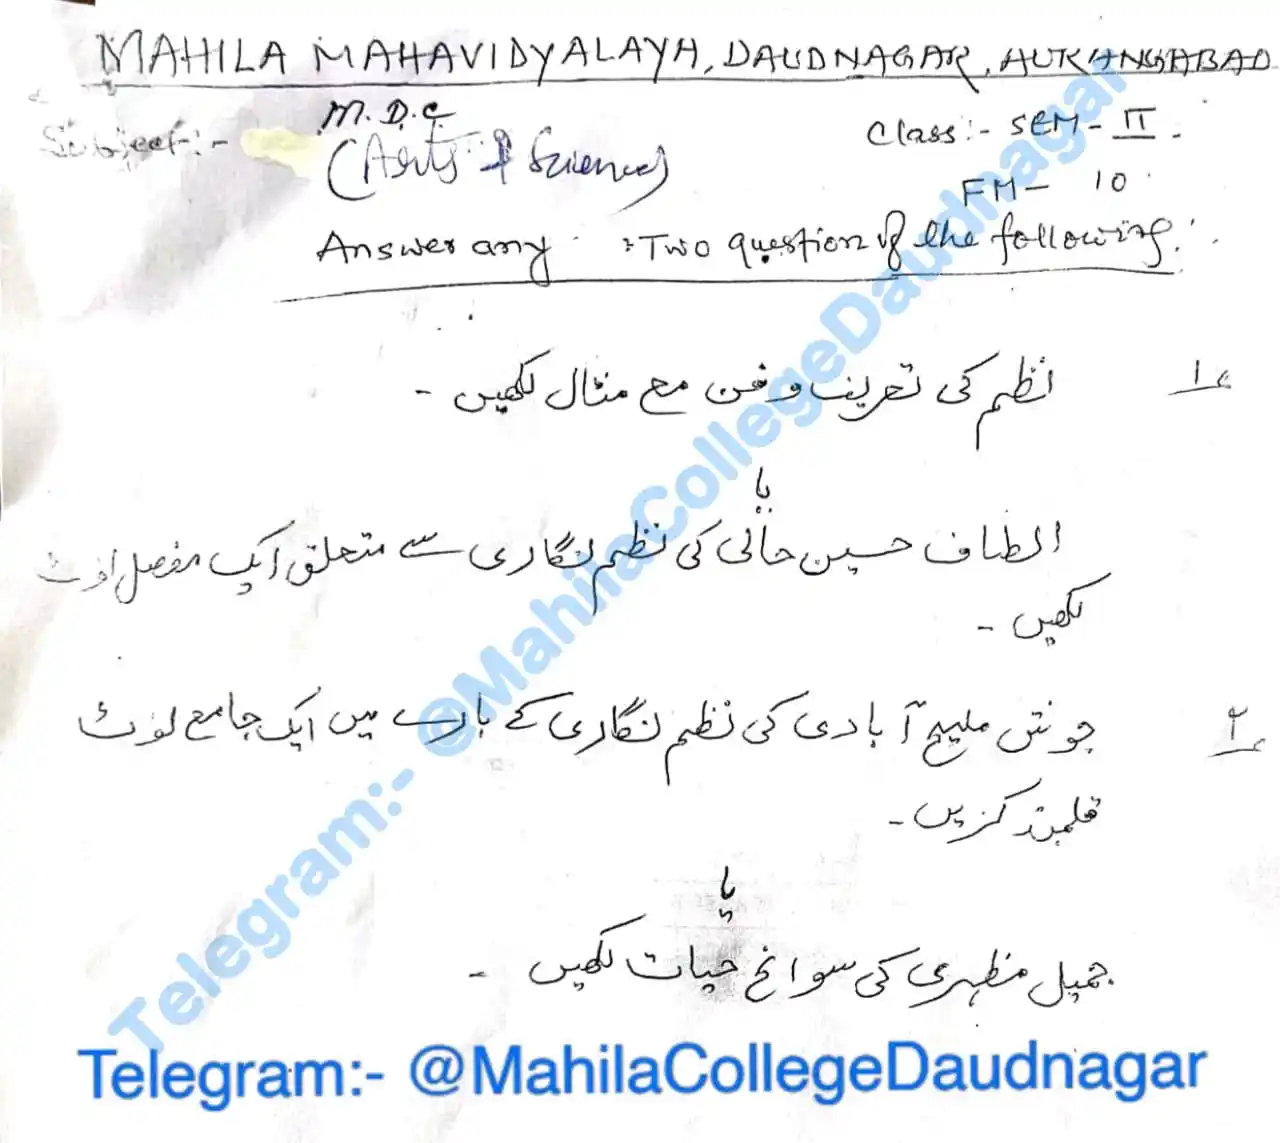 MAHILA MAHAVIDYALAYA, DAUDNAGAR, AURANGABAD
Subject:- M.D.C
(Arts & Science)
Class:- SEM-II.
FM- 10
Answer any Two question of the following.
۱ نظم کی تعریف و فن مع مثال لکھیں -
یا
الطاف حسین حالی کی نظم نگاری سے متعلق ایک مفصل نوٹ
لکھیں -
۲ جوش ملیح آبادی کی نظم نگاری کے بارے میں ایک جامع نوٹ
قلمبند کریں -
یا
جمیل مظہری کی سوانح حیات لکھیں -
Telegram:- @MahilaCollegeDaudnagar
Telegram:- @MahilaCollegeDaudnagar